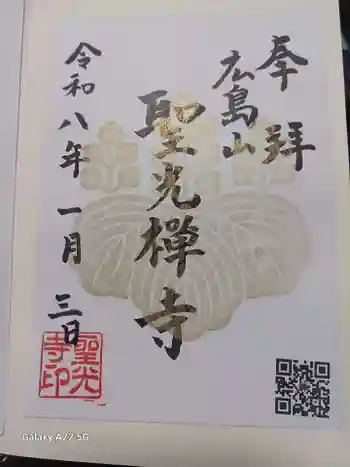 奉拜
広島山
聖光禅寺
令和八年一月三日
聖光
寺印
Galaxy A22 5G